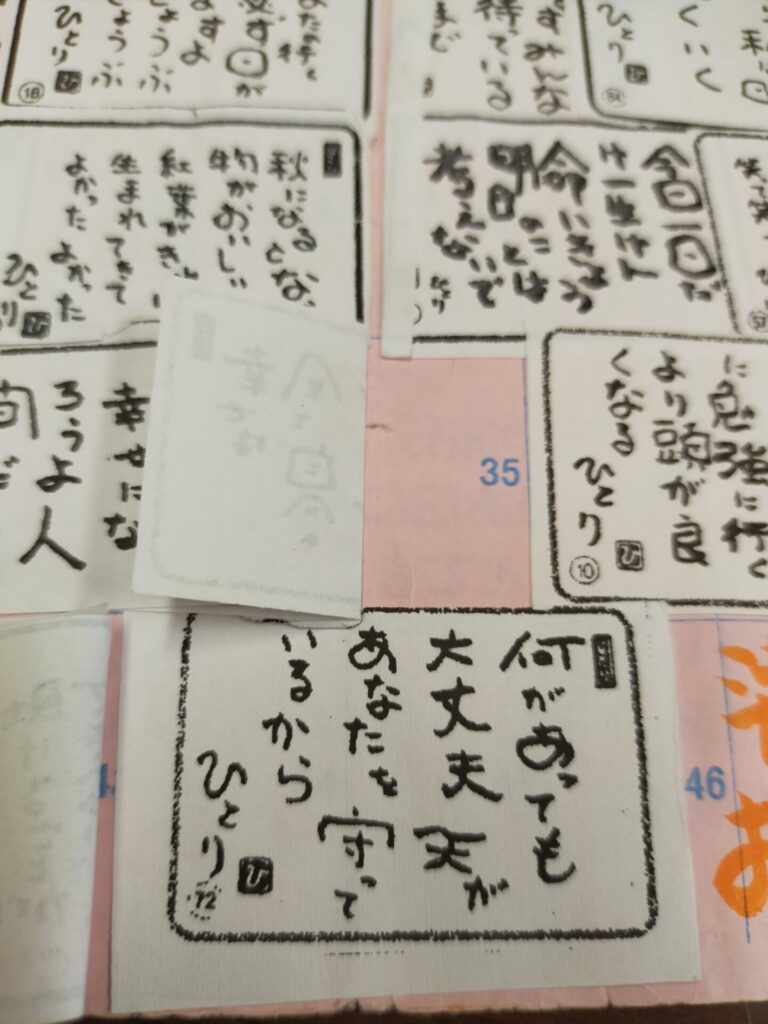 日が
ますよ
ょうぶ
ょうぶ
ひとり
ひ
18
ずみんな
待っている
くいく
ひとり
秋になるとな
物がおいしい
紅葉がき
生まれてきて
よかった よかった
ひとり
ひ
今日一日だ
け一生けん
命いきよう
明日のことは
考えないで
ひとり
57
幸せにな
ろうよ人
35
に勉強に行く
より頭が良
くなる
ひとり
ひ
10
何があっても
大丈夫 天が
あなたを守って
いるから
ひとり
ひ
72
46